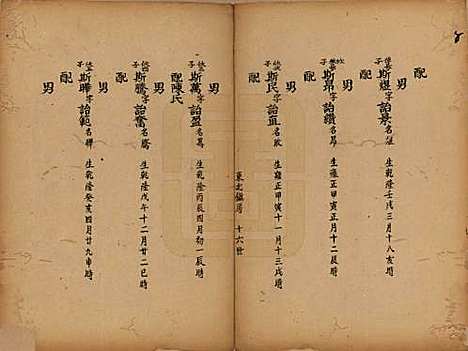 配
子 斯煜字詒景名煜 生乾隆壬戌三月十八亥時
男
配
子 斯昂字詒纘名昂 生雍正甲寅正月十二辰時
男
配
子 斯民字詒直名敏 生雍正甲寅十一月十三戌時
東北鎮房 十六世
男
子 斯萬字詒盈名萬 生乾隆丙辰四月初一辰時
配陳氏
男
子 斯騰字詒奮名騰 生乾隆戊午十二月廿二巳時
配
子 斯曄字詒範名曄 生乾隆癸亥四月廿九申時
男
配